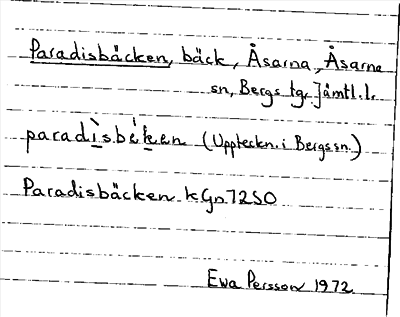 Paradisbäcken, bäck, Åsarna, Åsarne
sn, Bergs tg. Jämtl. l.
(Uppteckn. i Bergs sn.)
Paradisbäcken kGn 7250
Ewa Persson 1972